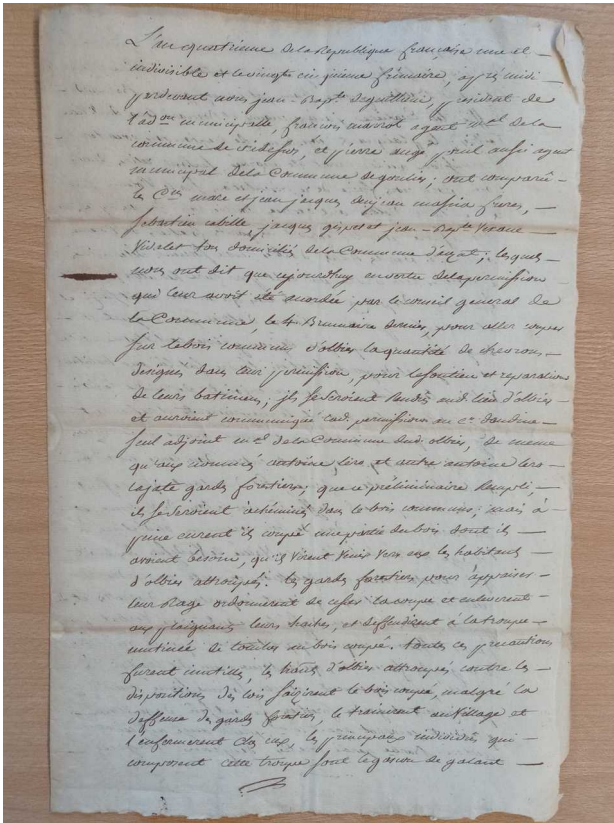 L'an quatrieme de la Republique française une et
indivisible et le vingt cinquieme frimaire, apres midi
pardevant nous jean-Bapte president de
l'adon municipalle, françois marrot agent mcal de la
commune de vicdessos, et pierre augé poul aussi agent
municipal de la Commune de goulier, ont comparu
le Cen marc et jean jacques freres,
sebastien jacques et jean-Bapte
Videlet tous domiciliés de la Commune d'auzat; lesquels
nous ont dit que cejourdhuy en vertu de la permission
qui leur avoit été accordée, par le conseil general de
la Commune, le 4 Brumaire dernier, pour aller couper
sur le bois commun d'olbier la quantité de chevrons
designés dans leur permission, pour le soutien et reparations
de leurs batimens; ils se seroient rendus aud. lieu d'olbier
et auroient communiqué lad. permission au cen
seul adjoint mcal de la Commune dud. olbier, de meme
qu'aux nommés antoine lera, et autre antoine lera
cajate gardes forestiers; que ce préliminaire Rempli,
ils se seroient acheminés dans le bois commun; mais à
peine eurent ils coupé une partie du bois dont ils
avoient besoin, qu'ils virent venir vers eux les habitants
d'olbier attroupés: les gardes forestiers pour appaiser
leur Rage ordonnerent de cesser la coupe et enleverent
aux plaignans leurs haches, et deffendirent à la troupe
mutinée de toucher au bois coupé. toutes ces precautions
furent inutiles, les hants d'olbier attroupés contre les
dispositions des lois saizirent le bois coupé, malgré la
deffense des gardes forestiers, le trainerent au Village et
l'enfermerent chez eux, les principaux individus qui
composent cette troupe sont le gascou de galant